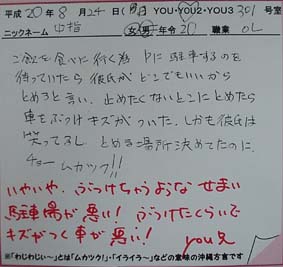 平成20年8月24日(日曜日) YOU・YOU2・YOU3 301号室
ニックネーム 中指 女・男 年令20 職業 OL
ご飯を食べに行く為 Pに駐車するのを
待っていたら彼氏がどこでもいいから
とめろと言い、止めたくないとこにとめたら
車をぶつけキズがついた。しかも彼氏は
笑ってるし とめる場所決めてたのに
チョームカツク!!
いやいや、ぶつけちゃうようなせまい
駐車場が悪い! ぶつけたくらいで
キズがつく車が悪い!
you兄
※「わじわじぃ~」とは「ムカツク!」・「イライラ~」などの意味の沖縄方言です